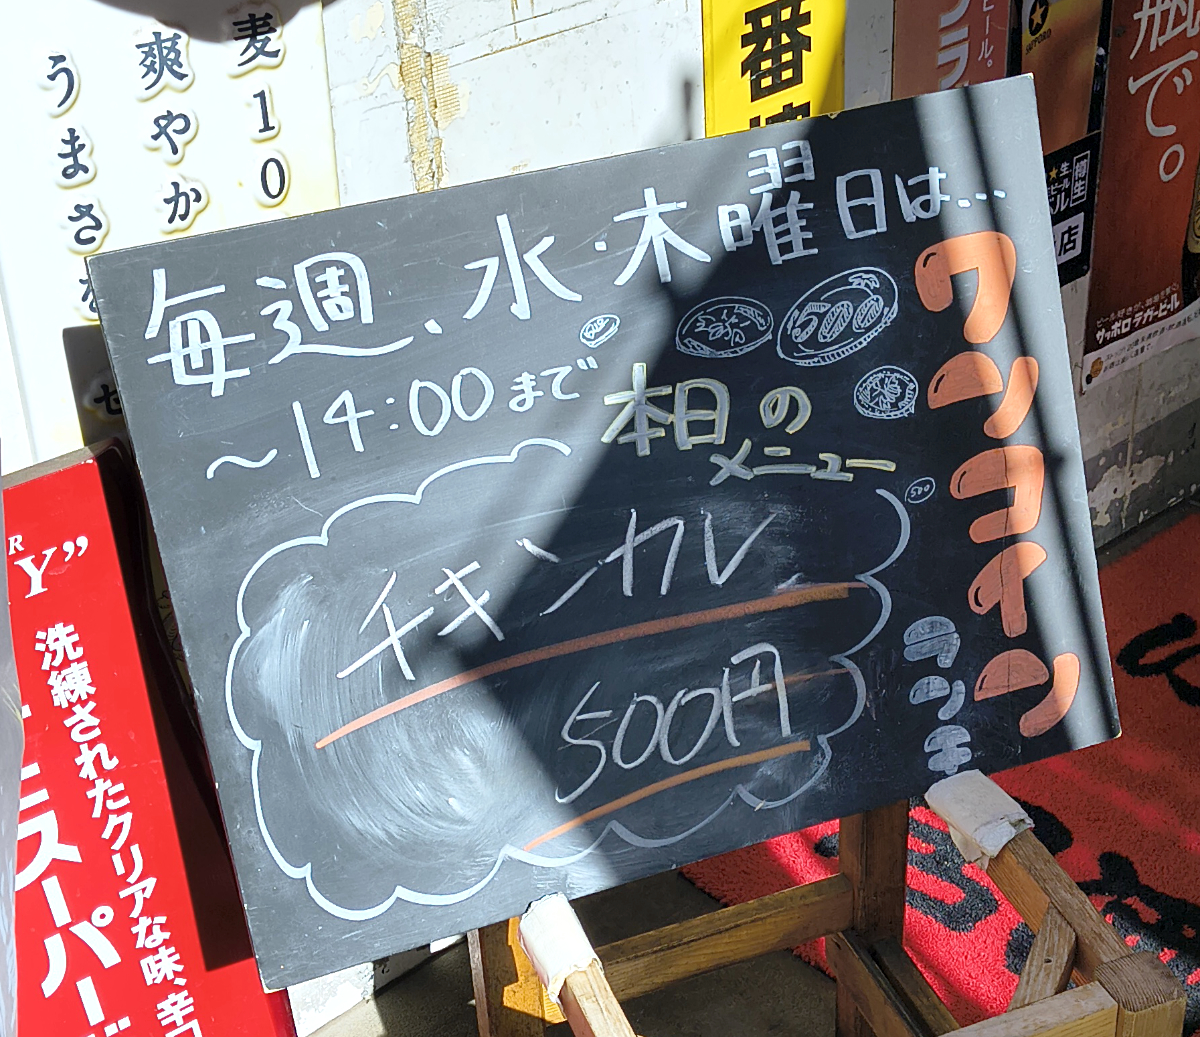 毎週、水・木曜日は…
~14:00まで
本日の
メニュー
チキンカレ
500円
ワンコイン
ランチ
500
500
麦10
爽やか
うまさ
番
瓶で。
SAPPORO
サッポロラガービール
樽生
店
Y”
洗練されたクリアな味、辛
スーパー